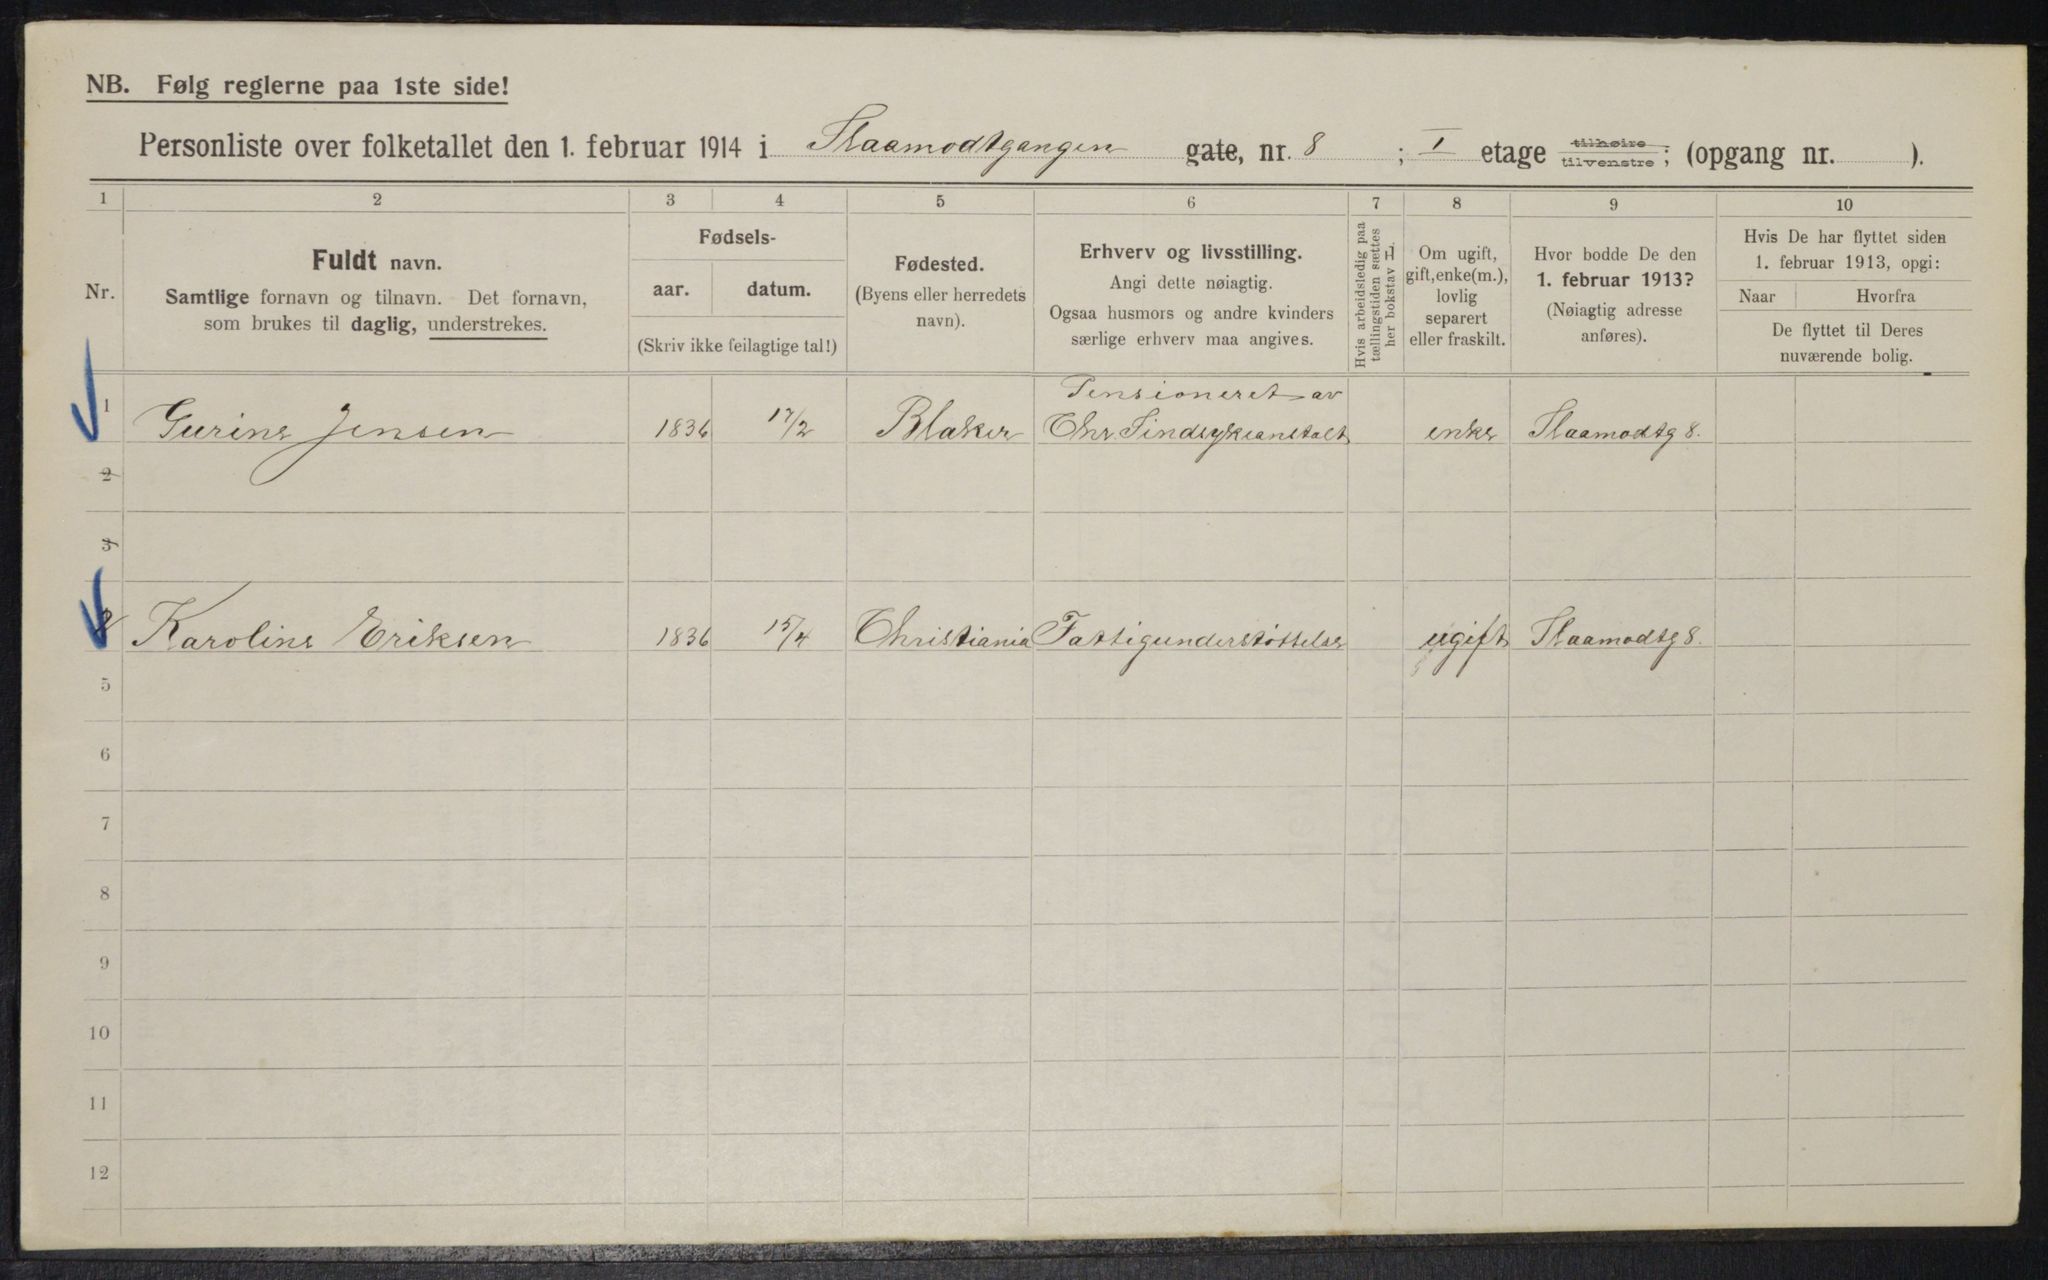 NB. Følg reglerne paa 1ste side!
Personliste over folketallet den 1. februar 1914 i Slaamodtgangen gate, nr. 8 ; I etage tilhøire tilvenstre; (opgang nr. ).
1 2 3 4 5 6 7 8 9 10
Nr.
Fuldt navn.
Samtlige fornavn og tilnavn. Det fornavn,
som brukes til daglig, understrekes.
Fødsels-
aar. datum.
(Skriv ikke feilagtige tal!)
Fødested.
(Byens eller herredets
navn).
Erhverv og livsstilling.
Angi dette nøiagtig.
Ogsaa husmors og andre kvinders
særlige erhverv maa angives.
Hvis arbeidsledig paa
tællingstiden sættes
her bokstav L.
Om ugift,
gift, enke(m.),
lovlig
separert
eller fraskilt.
Hvor bodde De den
1. februar 1913?
(Nøiagtig adresse
anføres).
Hvis De har flyttet siden
1. februar 1913, opgi:
Naar Hvorfra
De flyttet til Deres
nuværende bolig.
Pensioneret av
1 Gurine Jensen 1836 17/2 Blaker Chr. Sindsykeanstalt enke Slaamodtg 8.
2
3
Karoline Eriksen 1836 15/4 Christiania Fattigunderstøttelse ugift Slaamodtg 8.
5
6
7
8
9
10
11
12